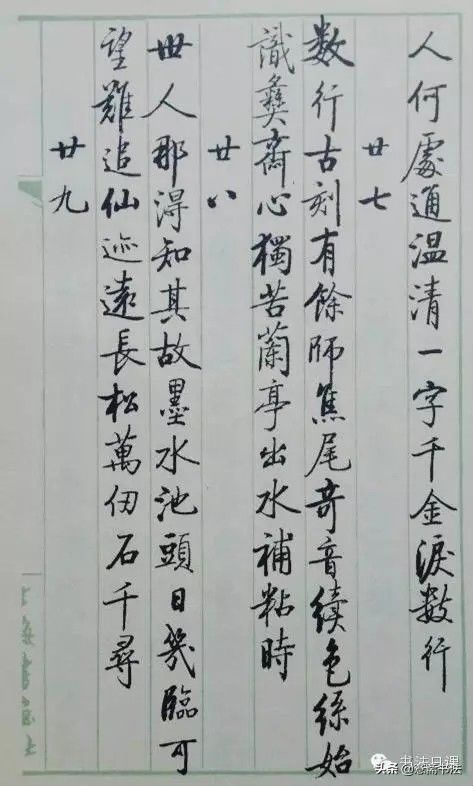 人何處通温清一字千金淚数行
廿七
数行古刻有餘师焦尾奇音续色丝始
識彝齋心獨苦蘭亭出水補粘時
廿八
世人那得知其故墨水池頭日幾臨可
望難追仙迹遠長松萬仞石千尋
廿九
书法日课
头条 @慈斋书法